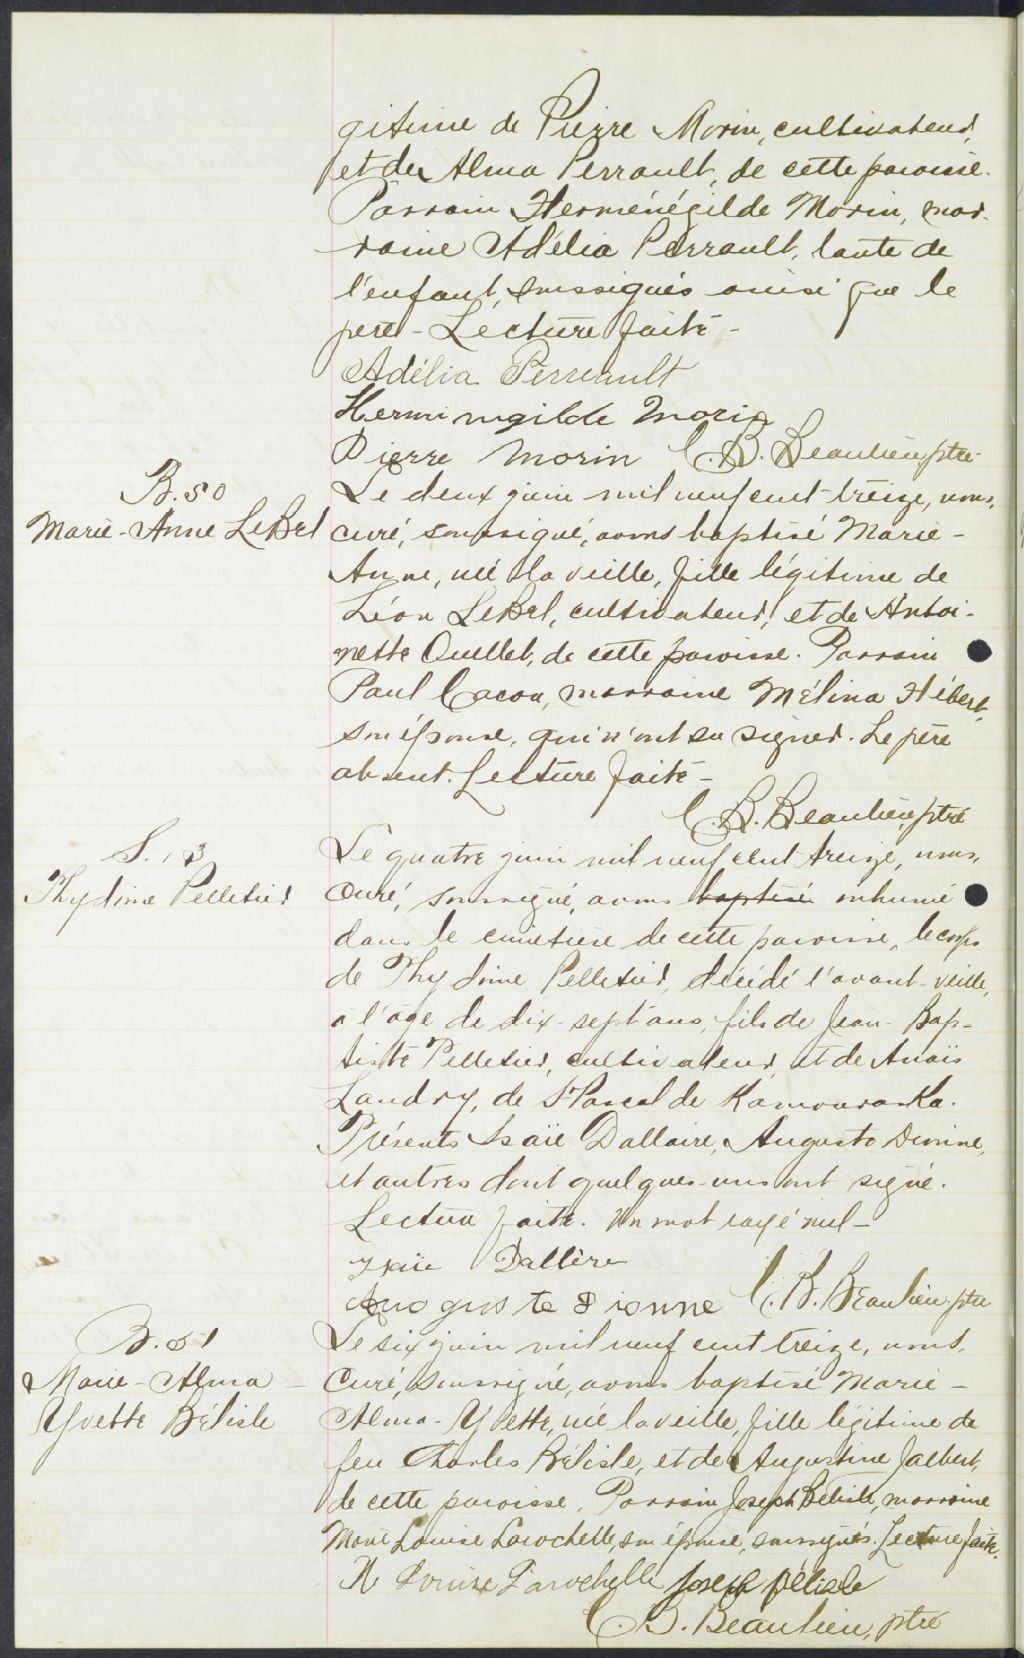 gitime de Pierre Morin, cultivateur,
et de Alma Perrault, de cette paroisse.
Parrain Herménégilde Morin, mar-
raine Adélia Perrault, tante de
l'enfant, soussignés ainsi que le
père - Lecture faite -
Adélia Perreault
Hermi ngilde Morin
Pierre Morin C. B. Beaulieu, ptre
B. 50
Marie-Anne LeBel
Le deux juin mil neuf cent treize, nous,
curé, soussigné, avons baptisé Marie-
Anne, née la veille, fille légitime de
Léon LeBel, cultivateur, et de Antoi-
nette Ouellet, de cette paroisse. Parrain
Paul Cacou, marraine Mélina Hébert,
son épouse, qui n'ont su signer. Le père
absent. Lecture faite -
C. B. Beaulieu, ptre
S. 13
Thydime Pelletier
Le quatre juin mil neuf cent treize, nous,
Curé, soussigné, avons baptisé inhumé
dans le cimetière de cette paroisse, le corps
de Thydime Pelletier, décédé l'avant-veille,
à l'âge de dix-sept ans, fils de Jean-Bap-
tiste Pelletier, cultivateur, et de Anaïs
Landry, de St Pascal de Kamouraska.
Présents Isaïe Dallaire, Auguste Dionne,
et autres dont quelques-uns ont signé.
Lecture faite. Un mot rayé nul -
Isaïe Dallère
Auo gus te Dionne C. B. Beaulieu ptre
B. 51
Marie-Alma
Yvette Bélisle
Le six juin mil neuf cent treize, nous,
Curé, soussigné, avons baptisé Marie-
Alma-Yvette, née la veille, fille légitime de
feu Charles Bélisle, et de Augustine Jalbert,
de cette paroisse. Parrain Joseph Bélisle, marraine
Marie Louise Larochelle, son épouse, soussignés. Lecture faite.
M Louise Larochelle Joseph Bélisle
C. B. Beaulieu, ptre